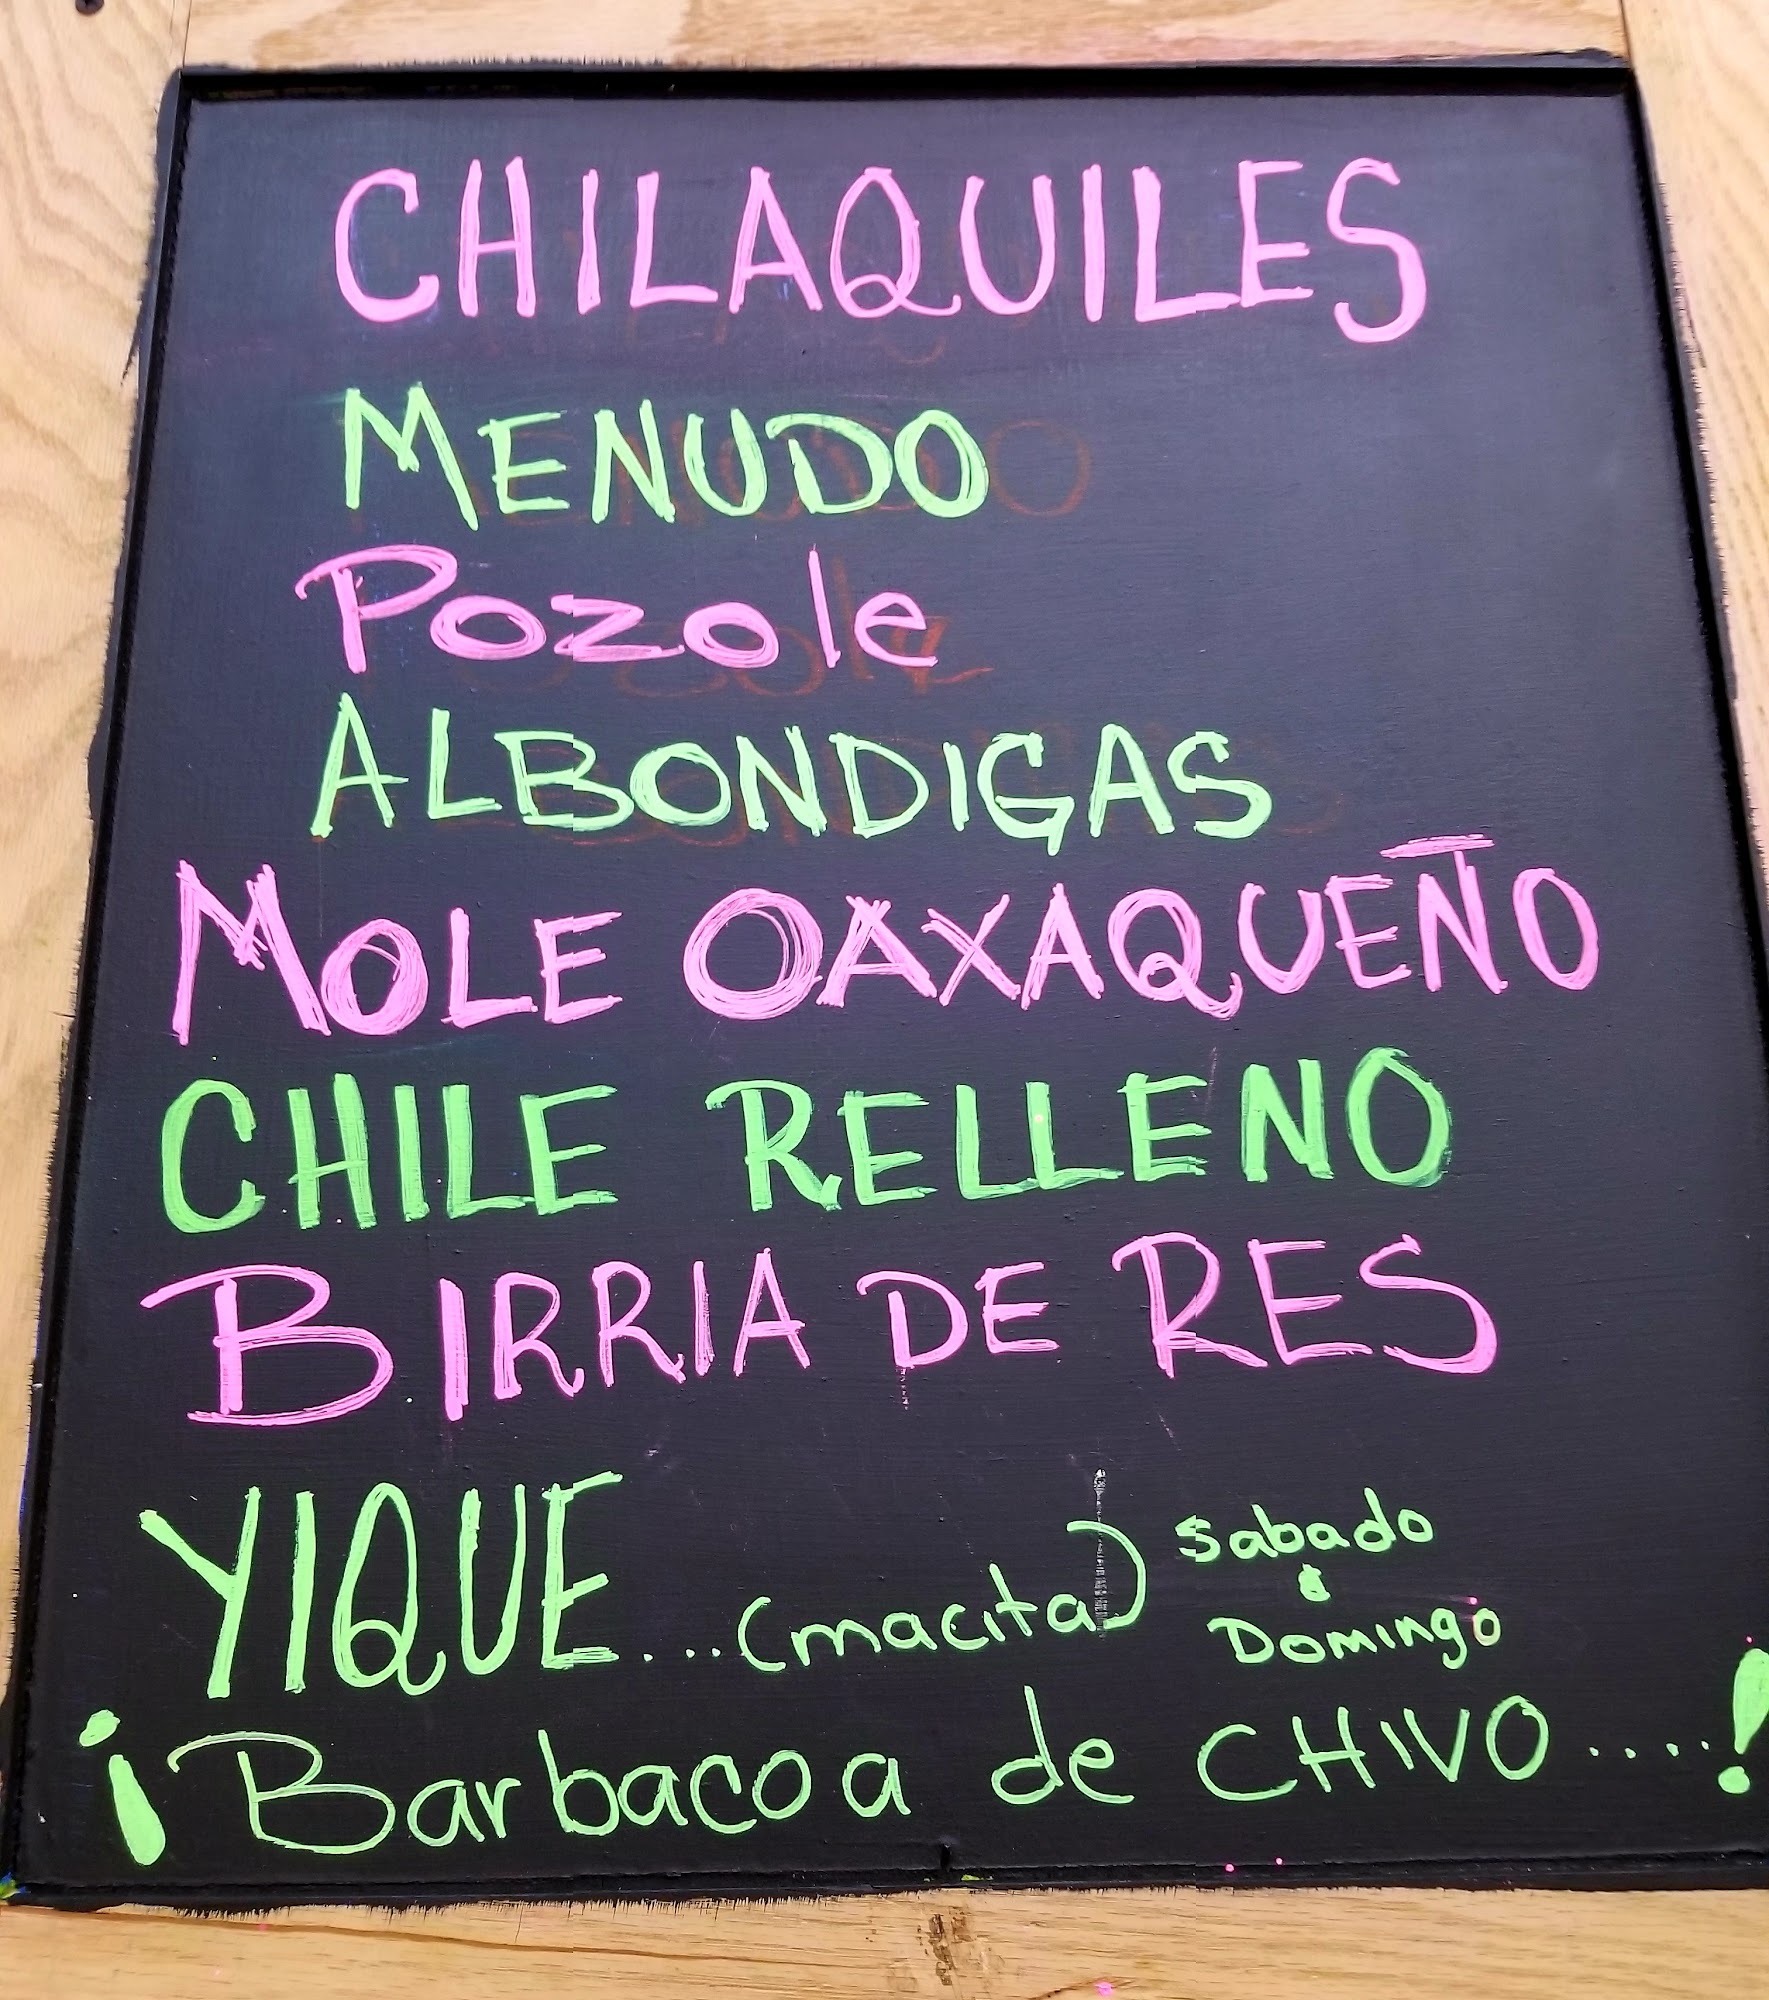 CHILAQUILES
MENUDO
Pozole
ALBONDIGAS
MOLE OAXAQUEÑO
CHILE RELLENO
BIRRIA DE RES
YIQUE...(macita)
Sabado
&
Domingo
¡Barbacoa de CHIVO.....!